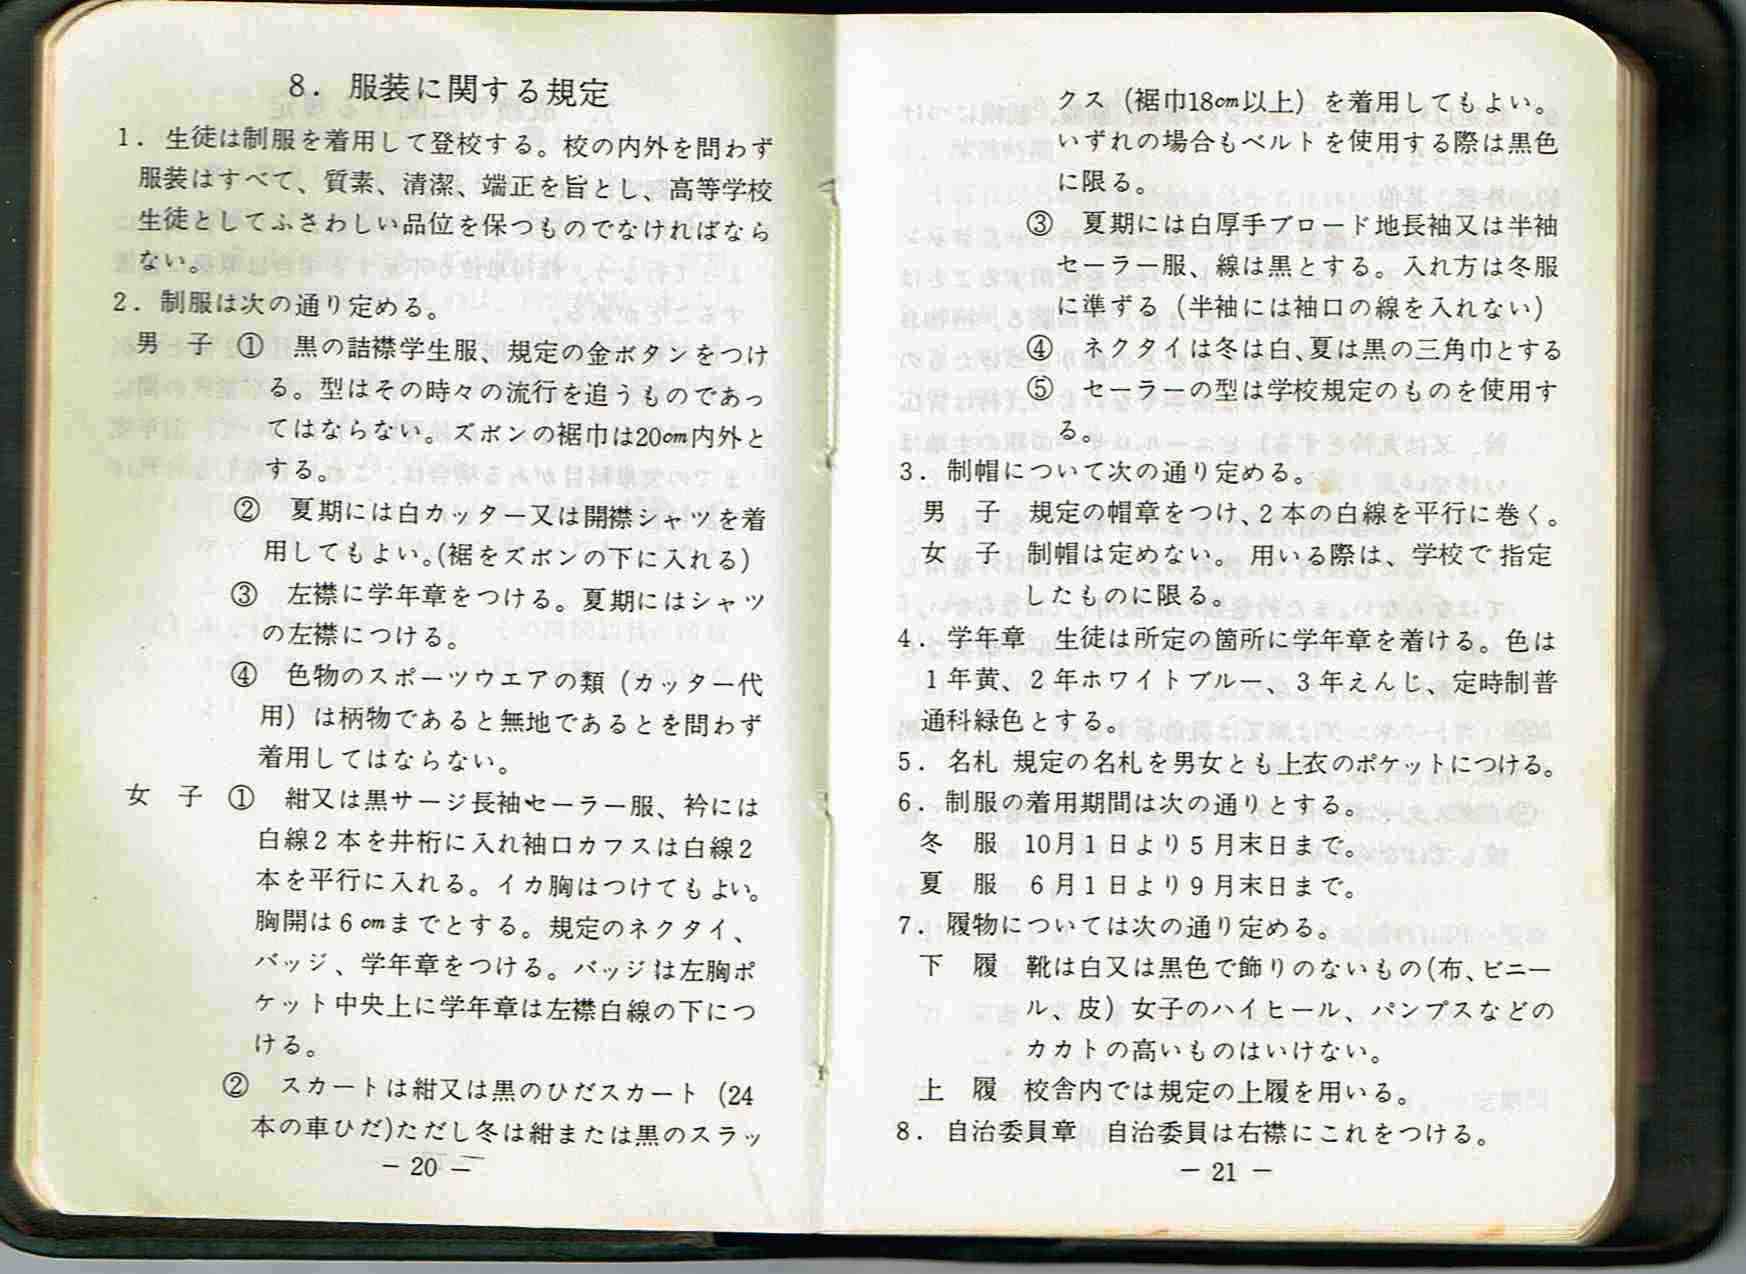 8．服装に関する規定
1．生徒は制服を着用して登校する。校の内外を問わず
服装はすべて、質素、清潔、端正を旨とし、高等学校
生徒としてふさわしい品位を保つものでなければなら
ない。
2．制服は次の通り定める。
男　子　①　黒の詰襟学生服、規定の金ボタンをつけ
る。型はその時々の流行を追うものであっ
てはならない。ズボンの裾巾は20cm内外と
する。
②　夏期には白カッター又は開襟シャツを着
用してもよい。(裾をズボンの下に入れる)
③　左襟に学年章をつける。夏期にはシャツ
の左襟につける。
④　色物のスポーツウエアの類（カッター代
用）は柄物であると無地であるとを問わず
着用してはならない。
女　子　①　紺又は黒サージ長袖セーラー服、衿には
白線2本を井桁に入れ袖口カフスは白線2
本を平行に入れる。イカ胸はつけてもよい。
胸開は6cmまでとする。規定のネクタイ、
バッジ、学年章をつける。バッジは左胸ポ
ケット中央上に学年章は左襟白線の下につ
ける。
②　スカートは紺又は黒のひだスカート（24
本の車ひだ)ただし冬は紺または黒のスラッ
－20－
クス（裾巾18cm以上）を着用してもよい。
いずれの場合もベルトを使用する際は黒色
に限る。
③　夏期には白厚手ブロード地長袖又は半袖
セーラー服、線は黒とする。入れ方は冬服
に準ずる（半袖には袖口の線を入れない）
④　ネクタイは冬は白、夏は黒の三角巾とする
⑤　セーラーの型は学校規定のものを使用す
る。
3．制帽について次の通り定める。
男　子　規定の帽章をつけ、2本の白線を平行に巻く。
女　子　制帽は定めない。用いる際は、学校で指定
したものに限る。
4．学年章　生徒は所定の箇所に学年章を着ける。色は
1年黄、2年ホワイトブルー、3年えんじ、定時制普
通科緑色とする。
5．名札　規定の名札を男女とも上衣のポケットにつける。
6．制服の着用期間は次の通りとする。
冬　服　10月1日より5月末日まで。
夏　服　6月1日より9月末日まで。
7．履物については次の通り定める。
下　履　靴は白又は黒色で飾りのないもの(布、ビニー
ル、皮）女子のハイヒール、パンプスなどの
カカトの高いものはいけない。
上　履　校舎内では規定の上履を用いる。
8．自治委員章　自治委員は右襟にこれをつける。
－21－